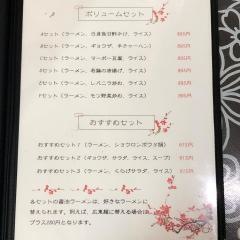 ボリュームセット
Aセット(ラーメン、白身魚甘酢かけ、ライス)
Bセット(ラーメン、ギョウザ、半チャーハン)
Cセット(ラーメン、マーボー豆腐、ライス)
Dセット(ラーメン、若鶏の唐揚げ、ライス)
Eセット(ラーメン、レバニラ炒め、ライス)
Fセット(ラーメン、モツ野菜炒め、ライス)
おすすめセット
おすすめセット1(ラーメン、ショウロンポウ2個)
おすすめセット2(ギョウザ、サラダ、ライス、スープ)
おすすめセット3(ラーメン、くらげサラダ、ライス)
各セットの醤油ラーメンは、好きなラーメンに
替えられます。例えば、広東麺に替える場合は
プラス280円となります。